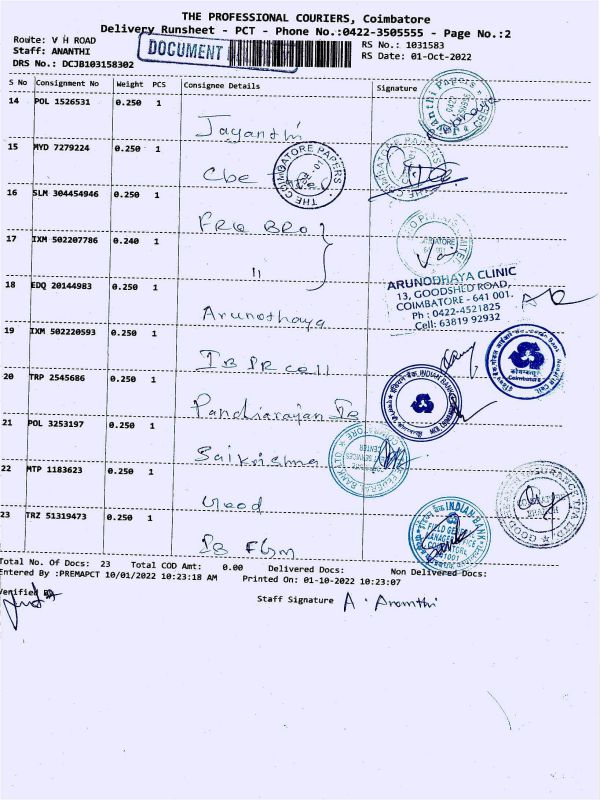 THE PROFESSIONAL COURIERS, Coimbatore
Delivery Runsheet - PCT - Phone No.:0422-3505555 - Page No.:2
Route: V H ROAD
DOCUMENT
RS No.: 1031583
Staff: ANANTHI
RS Date: 01-Oct-2022
DRS No.: DCJB103158302
S No Consignment No Weight PCS Consignee Details Signature
14 POL 1526531 0.250 1
Jayanthi
15 MYD 7279224 0.250 1
Cbe
THE COIMBATORE PAPERS
16 SLM 304454946 0.250 1
FRG BRO
17 IXM 502207786 0.240 1
"
18 EDQ 20144983 0.250 1
ARUNODHAYA CLINIC
13, GOODSHED ROAD,
COIMBATORE - 641 001.
Ph : 0422-4521825
Cell: 63819 92932
Arunothaya
19 IXM 502220593 0.250 1
IB PR cell
20 TRP 2545686 0.250 1
INDIAN BANK
Pandiarajan IB
21 POL 3253197 0.250 1
Saikrishna
FEDERAL BANK
22 MTP 1183623 0.250 1
Good
INSURANCE TPA LTD.
23 TRZ 51319473 0.250 1
INDIAN BANK
IB FGm
Total No. Of Docs: 23 Total COD Amt: 0.00 Delivered Docs: Non Delivered Docs:
Entered By :PREMAPCT 10/01/2022 10:23:18 AM Printed On: 01-10-2022 10:23:07
Verified By
Staff Signature A. Ananthi